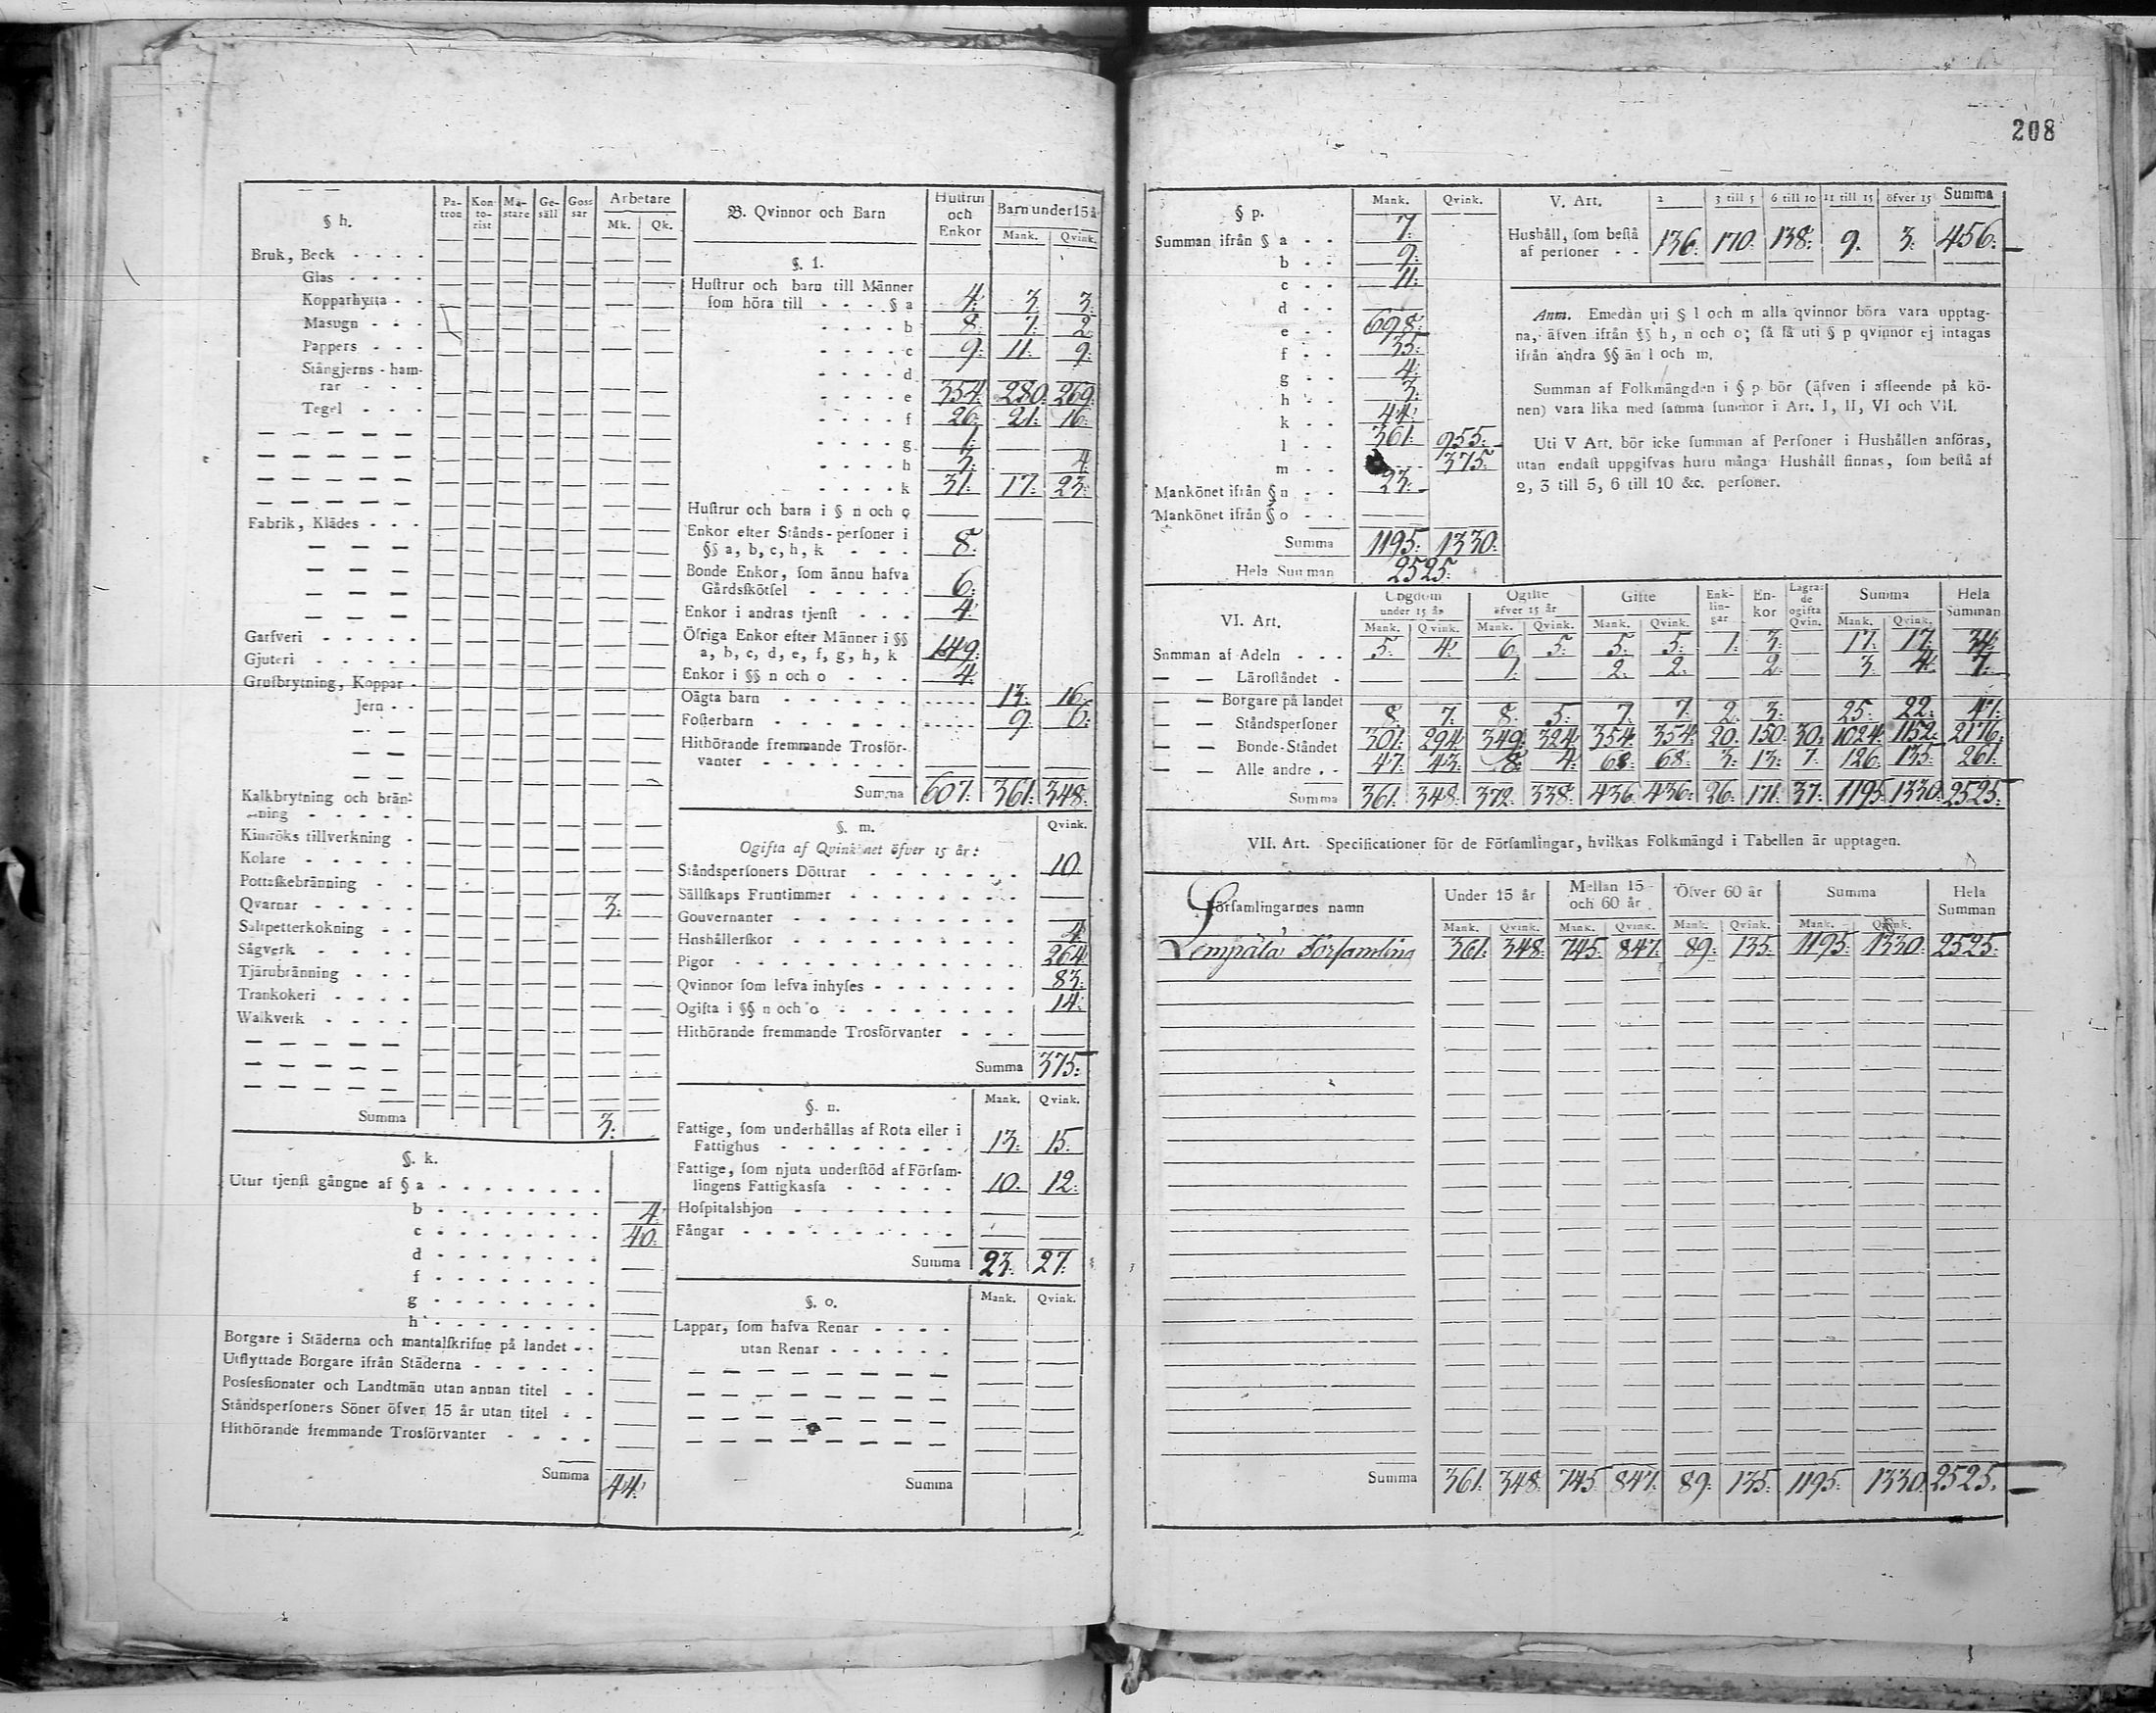 208
§ h.
Pa-tron Kon-to-rist Mä-stare Ge-säll Gos-sar Arbetare
Mk. Qk.
Bruk, Beck
Glas
Kopparhytta
Masugn
Pappers
Stångjerns-ham-
rar
Tegel
Fabrik, Klädes
Garfveri
Gjuteri
Grufbrytning, Koppar
Jern
Kalkbrytning och brän-
ning
Kimröks tillverkning
Kolare
Pottaſkebränning
Qvarnar 3:
Saltpetterkokning
Sågverk
Tjärubränning
Trankokeri
Walkverk
Summa 3:
§. k.
Utur tjenſt gångne af § a
b 4:
c 40:
d
f
g
h
Borgare i Städerna och mantalſkrifne på landet
Utflyttade Borgare ifrån Städerna
Posſesſionater och Landtmän utan annan titel
Ståndsperſoners Söner öfver 15 år utan titel
Hithörande fremmande Trosförvanter
Summa 44:
B. Qvinnor och Barn
Huſtrur och Enkor Barn under 15 å
Mank. Qvink.
§. l.
Huſtrur och barn till Männer
ſom höra till § a 4: 3 3
b 8: 7: 2
c 9: 11: 9:
d
e 354: 280: 269:
f 26: 21: 16:
g 1:
h 3: 4:
k 31: 17: 23:
Huſtrur och barn i § n och o
Enkor efter Stånds-perſoner i
§§ a, b, c, h, k 8:
Bonde Enkor, ſom ännu hafva
Gårdsſkötſel 6:
Enkor i andras tjenſt 4:
Öfriga Enkor efter Männer i §§
a, b, c, d, e, f, g, h, k 149:
Enkor i §§ n och o 4:
Oägta barn 13: 16:
Foſterbarn 9: 6:
Hithörande fremmande Trosför-
vanter
Summa 607: 361: 348:
§. m. Qvink.
Ogifta af Qvinkönet öfver 15 år:
Ståndsperſoners Döttrar 10
Sällſkaps Fruntimmer
Gouvernanter
Hushållerſkor 4
Pigor 264
Qvinnor ſom lefva inhyſes 83:
Ogifta i §§ n och o 14:
Hithörande fremmande Trosförvanter
Summa 375:
§. n. Mank. Qvink.
Fattige, ſom underhållas af Rota eller i
Fattighus 13: 15.
Fattige, ſom njuta underſtöd af Förſam-
lingens Fattigkasſa 10: 12:
Hoſpitalshjon
Fångar
Summa 23: 27:
§. o. Mank. Qvink.
Lappar, ſom hafva Renar
utan Renar
Summa
§ p. Mank. Qvink.
Summan ifrån § a 7:
b 9:
c 11:
d
e 698:
f 35:
g 4:
h 3:
k 44:
l 361: 955:
m 375:
Mankönet ifrån § n 23:
Mankönet ifrån § o
Summa 1195: 1330:
Hela Summan 2525:
V. Art. 2 3 till 5 6 till 10 11 till 15 öfver 15 Summa
Hushåll, ſom beſtå
af perſoner 136: 170: 138: 9. 3: 456:
Anm. Emedan uti § l och m alla qvinnor böra vara upptag-
na, äfven ifrån §§ h, n och o; få få uti § p qvinnor ej intagas
ifrån andra §§ än l och m.
Summan af Folkmängden i § p bör (äfven i afſeende på kö-
nen) vara lika med ſamma ſummor i Art. I, II, VI och VII.
Uti V Art. bör icke ſumman af Perſoner i Hushållen anföras,
utan endaſt uppgifvas huru många Hushåll finnas, ſom beſtå af
2, 3 till 5, 6 till 10 &c. perſoner.
VI. Art. Ungdom under 15 år Ogifte öfver 15 år Gifte Enk-lin-gar En-kor Lägra-de ogifta Qvin. Summa Hela Summan
Mank. Qvink. Mank. Qvink. Mank. Qvink. Mank. Qvink.
Summan af Adeln 5: 4: 6 5: 5: 5: 1: 3: 17: 17: 34:
Läroſtåndet 1: 2. 2. 2: 3: 4: 7:
Borgare på landet
Ståndsperſoner 8: 7: 8: 5: 7: 7. 2: 3: 25: 22: 47:
Bonde-Ståndet 301: 294: 349: 324: 354: 354: 20: 150: 30: 1024: 1152: 2176:
Alle andre 47: 43: 8: 4: 68: 68: 3: 13: 7: 126: 135: 261:
Summa 361: 348: 372: 338: 436 436: 26: 171: 37: 1195: 1330: 2525:
VII. Art. Specificationer för de Förſamlingar, hvilkas Folkmängd i Tabellen är upptagen.
Förſamlingarnes namn Under 15 år Mellan 15 och 60 år Öfver 60 år Summa Hela Summan
Mank. Qvink. Mank. Qvink. Mank. Qvink. Mank. Qvink.
Lempäla Församling 361: 348: 745: 847: 89: 135: 1195: 1330: 2525:
Summa 361: 348: 745: 847: 89: 135: 1195: 1330 2525.